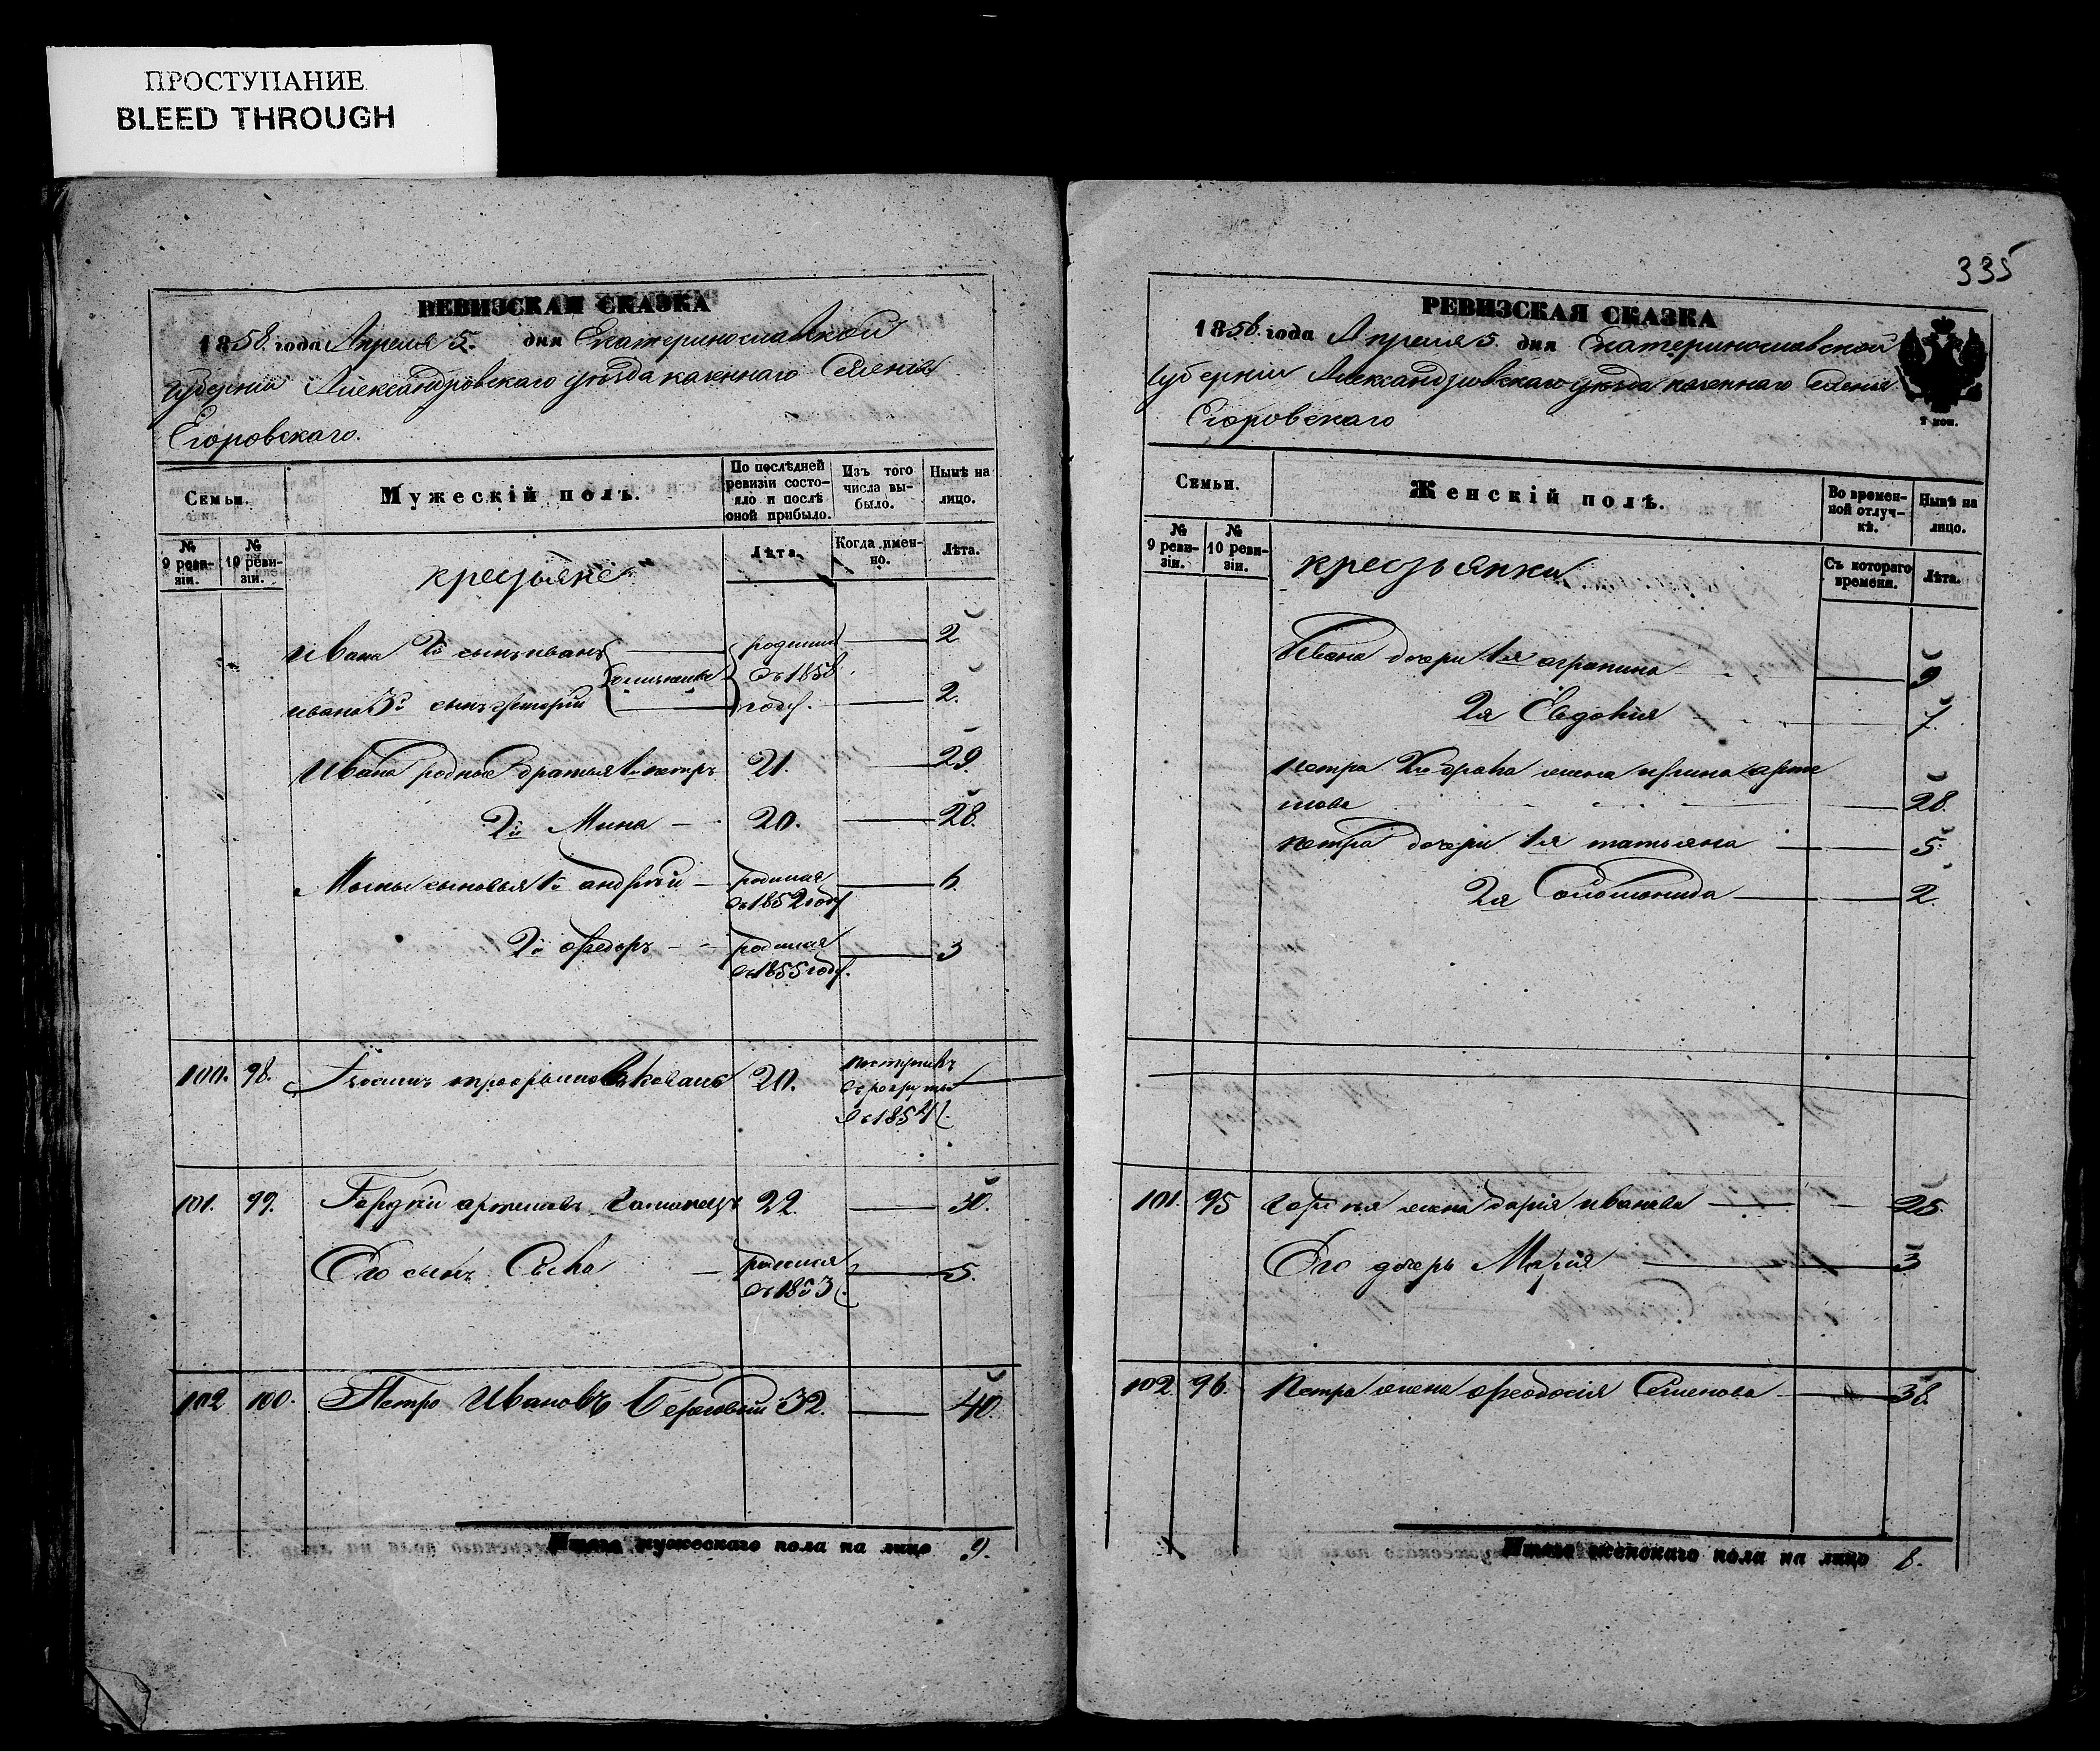 ПРОСТУПАНИЕ
BLEED THROUGH
РЕВИЗСКАЯ СКАЗКА
1858. года Апреля 5. дня Екатеринославской
губернии Александровскаго уезда казеннаго Селения
Егоровскаго.
Семьи.
Мужескій полъ.
По послѣдней
ревизіи состо-
яло и послѣ
оной прибыло.
Изъ того
числа вы-
было.
Нынѣ на
лицо.
№
9 реви-
зіи.
№
10 реви-
зіи.
крестьяне
Лѣта.
Когда имен-
но.
Лѣта.
Ивана 2й сынъ иванъ родиши 2
въ 1856
ивана 3й сынъ году. 2.
Ивана родные братья 1й петръ 21. 29.
2й Мина 20. 28.
Мины сыновья 1й андрей родился 6.
въ 1852 году
2й федоръ родился 3
въ 1855 году.
100. 98. 20. поступилъ
въ рекруты
въ 1854 г.
101. 99. 22. 30.
Его сынъ Сава родился 5.
въ 1853 г.
102 100. Петро Ивановъ Береговый 32. 40.
Итого мужескаго пола на лицо 9.
335
РЕВИЗСКАЯ СКАЗКА
1858. года Апреля 5. дня Екатеринославской
губернии Александровскаго уезда казеннаго Селения
Егоровскаго
Семьи.
Женскій полъ.
Во времен-
ной отлуч-
кѣ.
Нынѣ на
лицо.
№
9 реви-
зіи.
№
10 реви-
зіи.
крестьянки
Съ котораго
времени.
Лѣта.
Ивана дочери 1я агрипина 9
2я Евдокия 7.
петра жена ирина арте
мова 28.
петра дочери 1я татьяна 5.
2я Соломонида 2.
101. 95 жена дария иванова 25.
Его дочерь Мария 3
102. 96. Петра жена феодосия Семенова 38.
Итого женскаго пола на лицо 8.